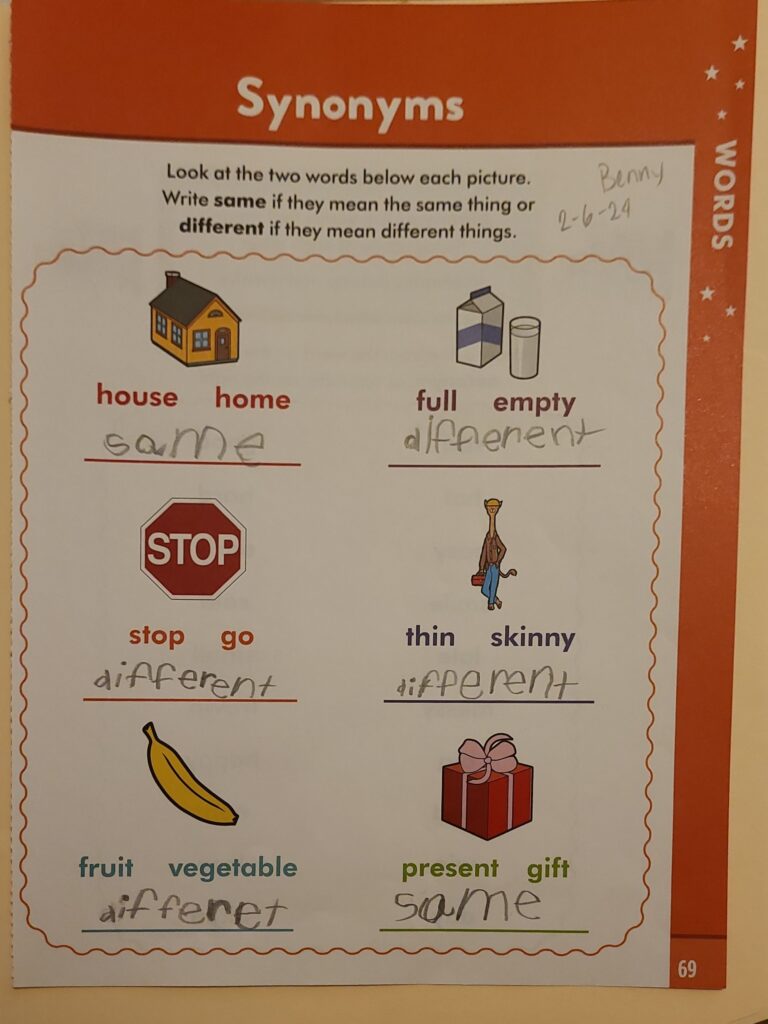 Synonyms
WORDS
Look at the two words below each picture.
Write same if they mean the same thing or
different if they mean different things.
Benny
2-6-24
house home
same
full empty
different
STOP
stop go
different
thin skinny
different
fruit vegetable
differet
present gift
same
69